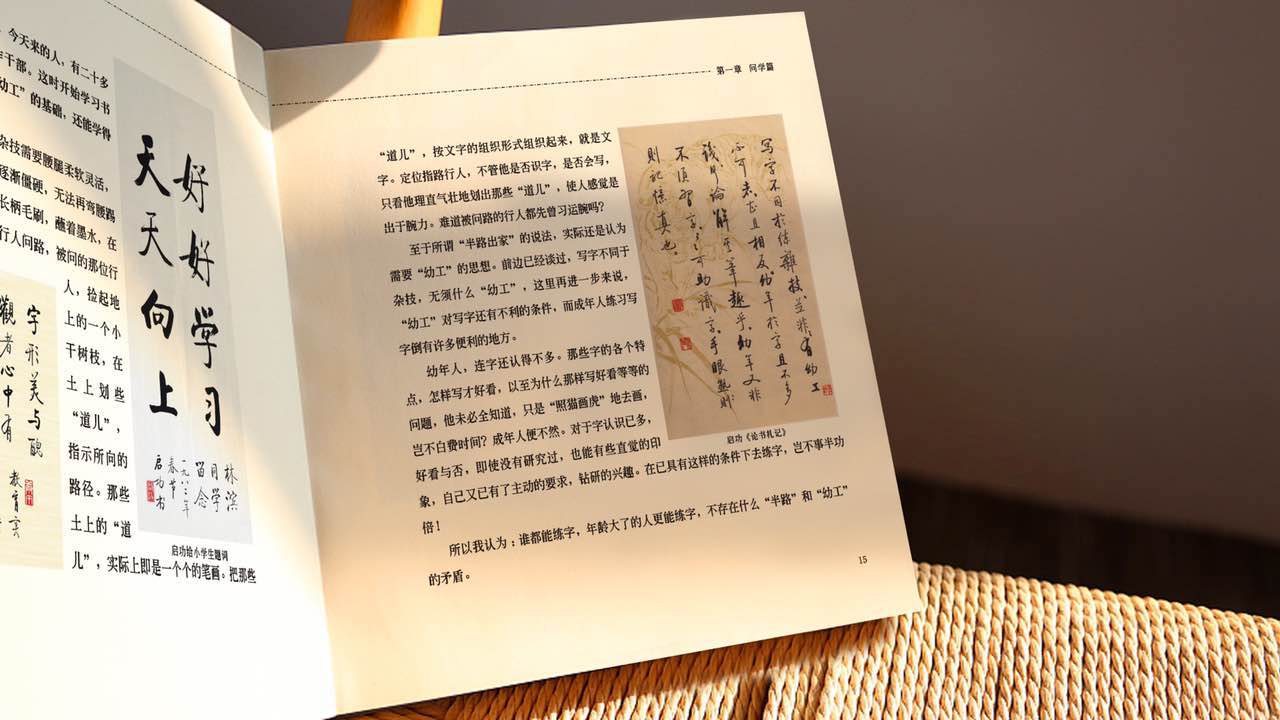 今天来的人，有二十多
干部。这时开始学习书
幼工”的基础，还能学得
杂技需要腰腿柔软灵活，
逐渐僵硬，无法再弯腰踢
长柄毛刷，蘸着墨水，在
行人问路，被问的那位行
人，捡起地
上的一个小
干树枝，在
土上划些
“道儿”，
指示所向的
路径。那些
土上的“道
儿”，实际上即是一个个的笔画。把那些
好好学习
天天向上
林滨
同学
留念
一九八三年
春节
启功书
启功给小学生题词
字形美与醜
觀者心中有
教育言
第一章 问学篇
“道儿”，按文字的组织形式组织起来，就是文
字。定位指路行人，不管他是否识字，是否会写，
只看他理直气壮地划出那些“道儿”，使人感觉是
出于腕力。难道被问路的行人都先曾习运腕吗？
至于所谓“半路出家”的说法，实际还是认为
需要“幼工”的思想。前边已经谈过，写字不同于
杂技，无须什么“幼工”，这里再进一步来说，
“幼工”对写字还有不利的条件，而成年人练习写
字倒有许多便利的地方。
幼年人，连字还认得不多。那些字的各个特
点，怎样写才好看，以至为什么那样写好看等等的
问题，他未必全知道，只是“照猫画虎”地去画，
岂不白费时间？成年人便不然。对于字认识已多，
好看与否，即使没有研究过，也能有些直觉的印
象，自己又已有了主动的要求，钻研的兴趣。在已具有这样的条件下去练字，岂不事半功
倍！
所以我认为：谁都能练字，年龄大了的人更能练字，不存在什么“半路”和“幼工”
的矛盾。
写字不同於练雜技並非有幼工
不可志且相反幼年於字且不多
識何論解乎筆趣乎幼年又非
不須習字習字可助識字手眼熟則
則記憶真也
启功《论书札记》
15